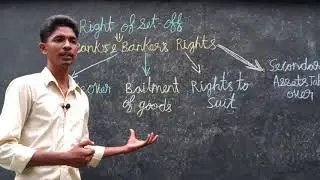 Right of Set-off
Banks & Bankers Rights
over
Bailment
of goods
Rights to
Suit
Secondary
Assets Take
over